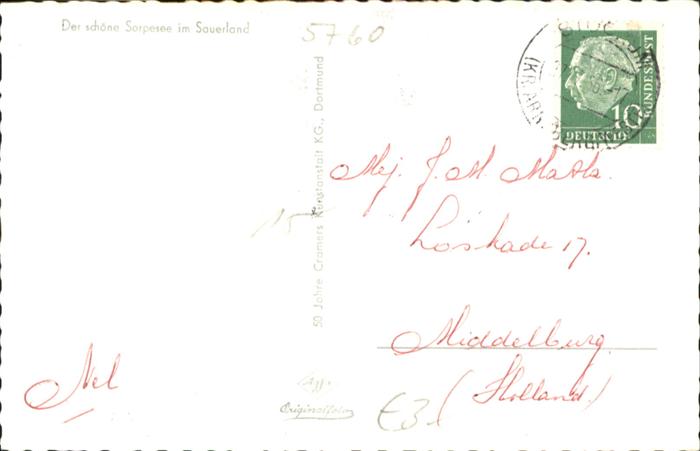 Der schöne Sorpesee im Sauerland
5760
10
BUNDESPOST
DEUTSCHE
(KR. ARNSBERG)
Mej. J. M.
15
50 Jahre Cramers Kunstanstalt KG., Dortmund
17.
Middelburg.
(Holland.)
Nel
Originalfoto
€3.